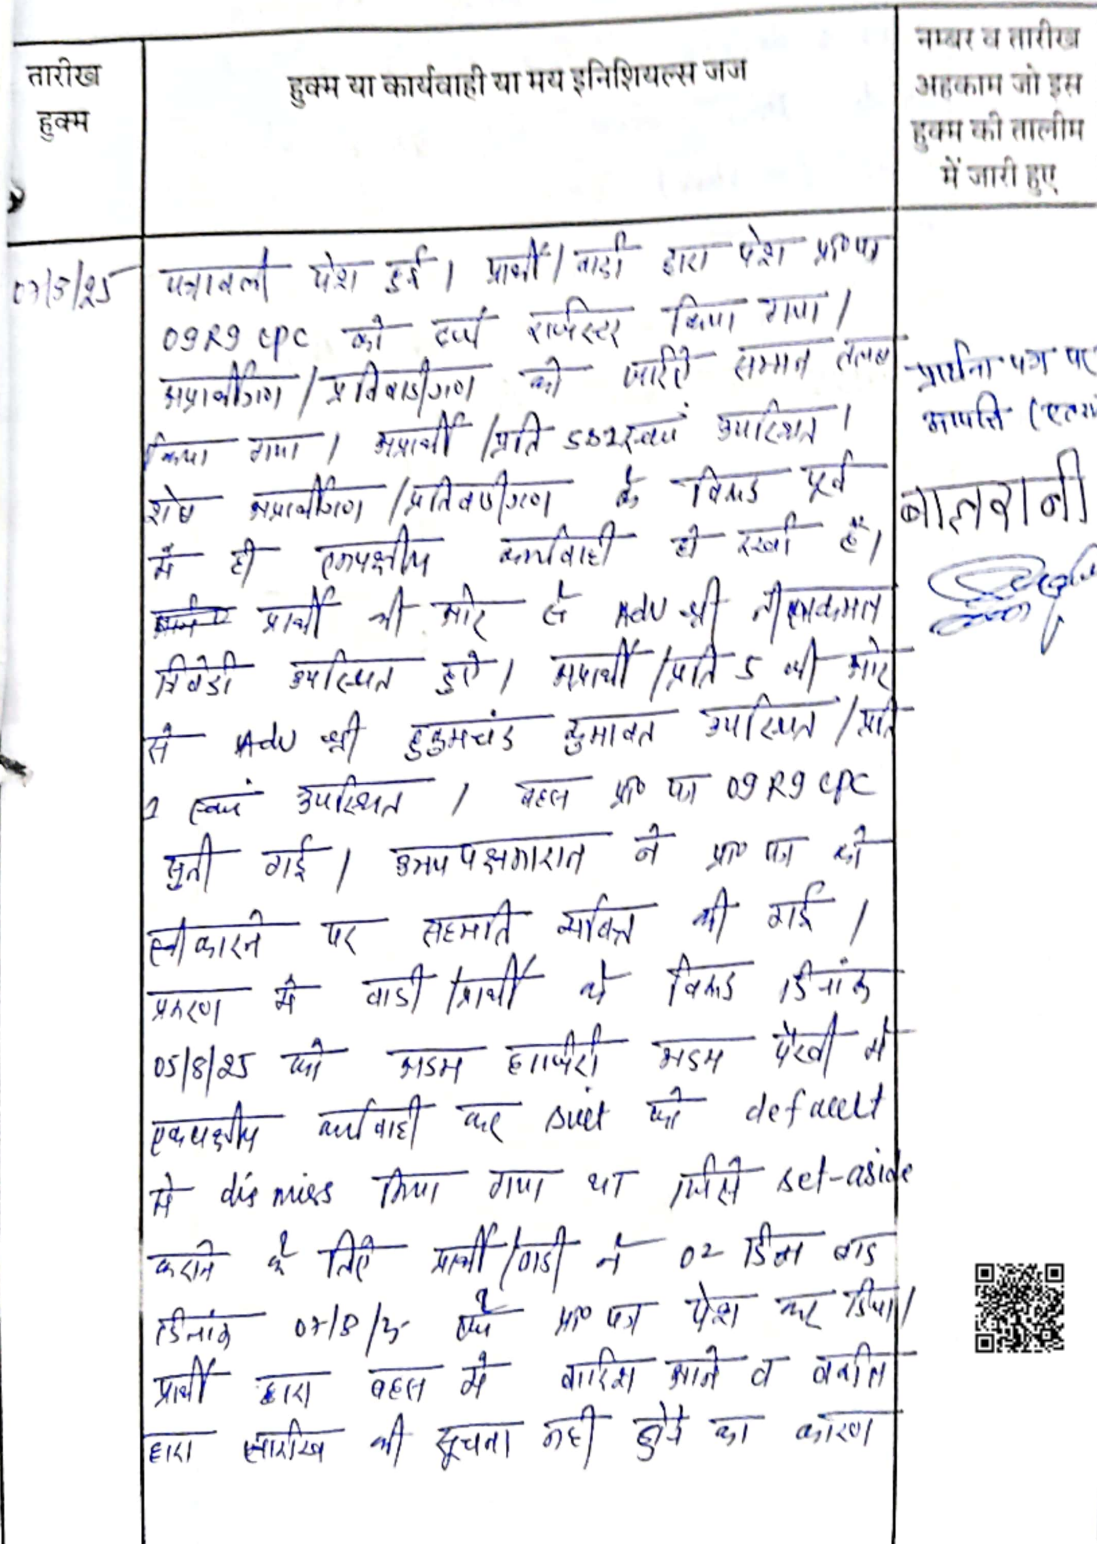 तारीख
हुक्म
हुक्म या कार्यवाही या मय इनिशियल्स जज
नम्बर व तारीख
अहकाम जो इस
हुक्म की तालीम
में जारी हुए
पत्रावली पेश हुई । प्रार्थी / वादी द्वारा पेश प्रा० पत्र
09R9 CPC को दर्ज रजिस्टर किया गया ।
अप्रार्थीगण / प्रतिवादीगण को जरिऐ समान तलब
किया गया । अप्रार्थी / प्रति 5 व 2 स्वयं उपस्थित ।
शेष अप्रार्थीगण / प्रतिवादीगण के विरूद्ध पूर्व
में ही एकपक्षीय कार्यवाही हो रखी है ।
प्रार्थी की ओर से Adv श्री त्रिवेदी उपस्थित हुऐ । अप्रार्थी / प्रति 5 की ओर
से Adv श्री हुकुमचंद कुमावत उपस्थित / प्रति
2 स्वयं उपस्थित । बहस प्रा० पत्र 09 R9 CPC
सुनी गई । उभयपक्षकारान ने प्रा० पत्र को
स्वीकारने पर सहमति व्यक्ति की गई ।
प्रकरण में वादी / प्रार्थी के विरूद्ध दिनांक
05/8/25 को अदम हाजिरी अदम पैरवी में
एकपक्षीय कार्यवाही कर suit को default
में dismiss किया गया था जिसे set-aside
कराने के लिऐ प्रार्थी / वादी ने 02 दिवस बाद
दिनांक 07/8/25 को प्रा० पत्र पेश कर दिया ।
प्रार्थी द्वारा बहस में बारिश आने व वकील
द्वारा तारीख की सूचना नही होने का कारण
प्रार्थना पत्र पर
आपत्ति